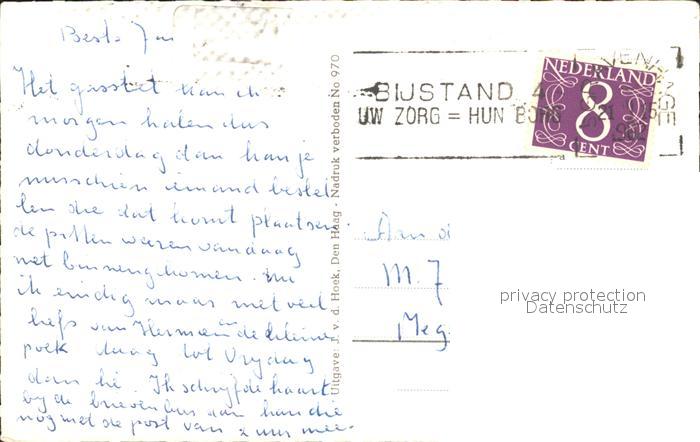 Beste Jan
Het gasstel kan ik
morgen halen dus
donderdag dan kan je
misschien iemand bestel
len die dat komt plaatsen
de pitten waren vandaag
net binnengekomen. nu
ik eindig maar met veel
liefs van Herman en de kleine
poek daag tot Vrijdag
dan hé. Ik schrijf de kaart
bij de brievenbus dan kan die
nog met de post van 2 uur mee.
Uitgave: J. v. d. Hoek, Den Haag - Nadruk verboden No 970
BIJSTAND
UW ZORG = HUN BORG
NEDERLAND
8
CENT
Aan d
M. J
Meg
privacy protection
Datenschutz